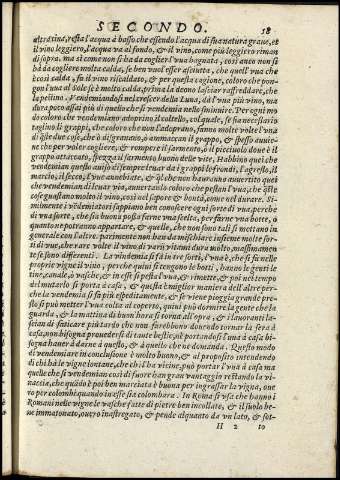 SECONDO. 58
altra tina, resta l'acqua à basso che essendo l'acqua di sua natura graue, et
il vino leggiero, l'acqua va al fondo, & il vino, come più leggiero riman
di sopra. ma si come non si ha da coglier l'vua bagnata, così anco non si
hà da cogliere molto calda, se ben vuol esser asciutta, che quell'vua che
è così calda, fa il vino riscaldato, & per questa cagione, coloro che pon-
gon l'vua al Sole s'è molto calda, prima la deono lasciar raffreddare, che
la pestino. Vendemiandosi nel crescer della Luna, dà l'vua più vino, ma
dura poco assai più di quello che si vendemia nello sminuire. Per ogni mo
do coloro che vendemiano adoprino il coltello, col quale, se sia necessario
taglino li grappi, che coloro che non l'adoprano, fanno molte volte l'vna
di q̃ste due cose, che ò disgranano, ò ammaccan il grappo, & spesso auuie-
ne che per voler cogliere, & rompere il sarmento, ò il picciuolo doue è il
grappo attaccato, spezza il sarmento buono delle vite, Habbino quei che
vendemian questo auiso di sempre leuar da i grappi le frondi, l'agresto, il
marcio, il secco, l'vue annebiate, & q̃l che non hauranno auuertito quei
che vendemian di leuar via, auuertanlo coloro che pestan l'vua, che q̃ste
cose guastano molto il vino, così nel sapore & bontà, come nel durare. Si-
milmente i vendemiatori sappiano ben conoscere ogni sorte di vua, perche
di vua forte, che sia buona possa farne vua scelta, per farne vna botte, ò
quanto ne potranno appartare, & quelle, che non sono tali si mettano in
generale con l'altre. parimente non han da mischiare insieme molte sor-
ti di vue, che rare volte il vino di varii vitami dura molto, massimamen
te se sono differenti. La vindemia si fà in tre sorti, l'vna è, che si fà nelle
proprie vigne il vino, perche quiui si tengono le botti, hanno le genti le
tine, canale, ò vasche, & in esse si pesta l'vua, & rimette, & poi nel tempo
del mutarlo si porta à casa, & questa è miglior maniera dell'altre per-
che la vendemia si fà più espeditamente, & se viene pioggia grande pre-
sto si può metter l'vua colta al coperto, quiui può dormire la gente che la
guarda, & la mattina di buon'hora si torna all'opra, & i lauoranti la-
scian di faticare più tardo che non farebbono douendo tornar la sera à
casa, non bisogna prouedersi di tante bestie, nè portandosi l'vua à casa bi-
sogna hauer à darne à questo, & à quello che ne domanda. Questo modo
di vendemiare in conclusione è molto buono, & al proposito intendendo
di chi hà le vigne lontane, che chi l'ha vicine, può portar l'vua à casa ma
quelle che si vendemian così di fuore han gran vantaggio restando la vi-
naccia, che quãdo è poi ben marciata è buona per ingrassar la vigna, oue
ro per colombi quando in esse sia colombara. In Roma si vsa che hanno i
Romani nelle vigne le vasche fatte di pietre ben incollate, & il suolo be-
ne immatonato, ouero inastregato, & pende alquanto da vn lato, & sot-
H 2 to